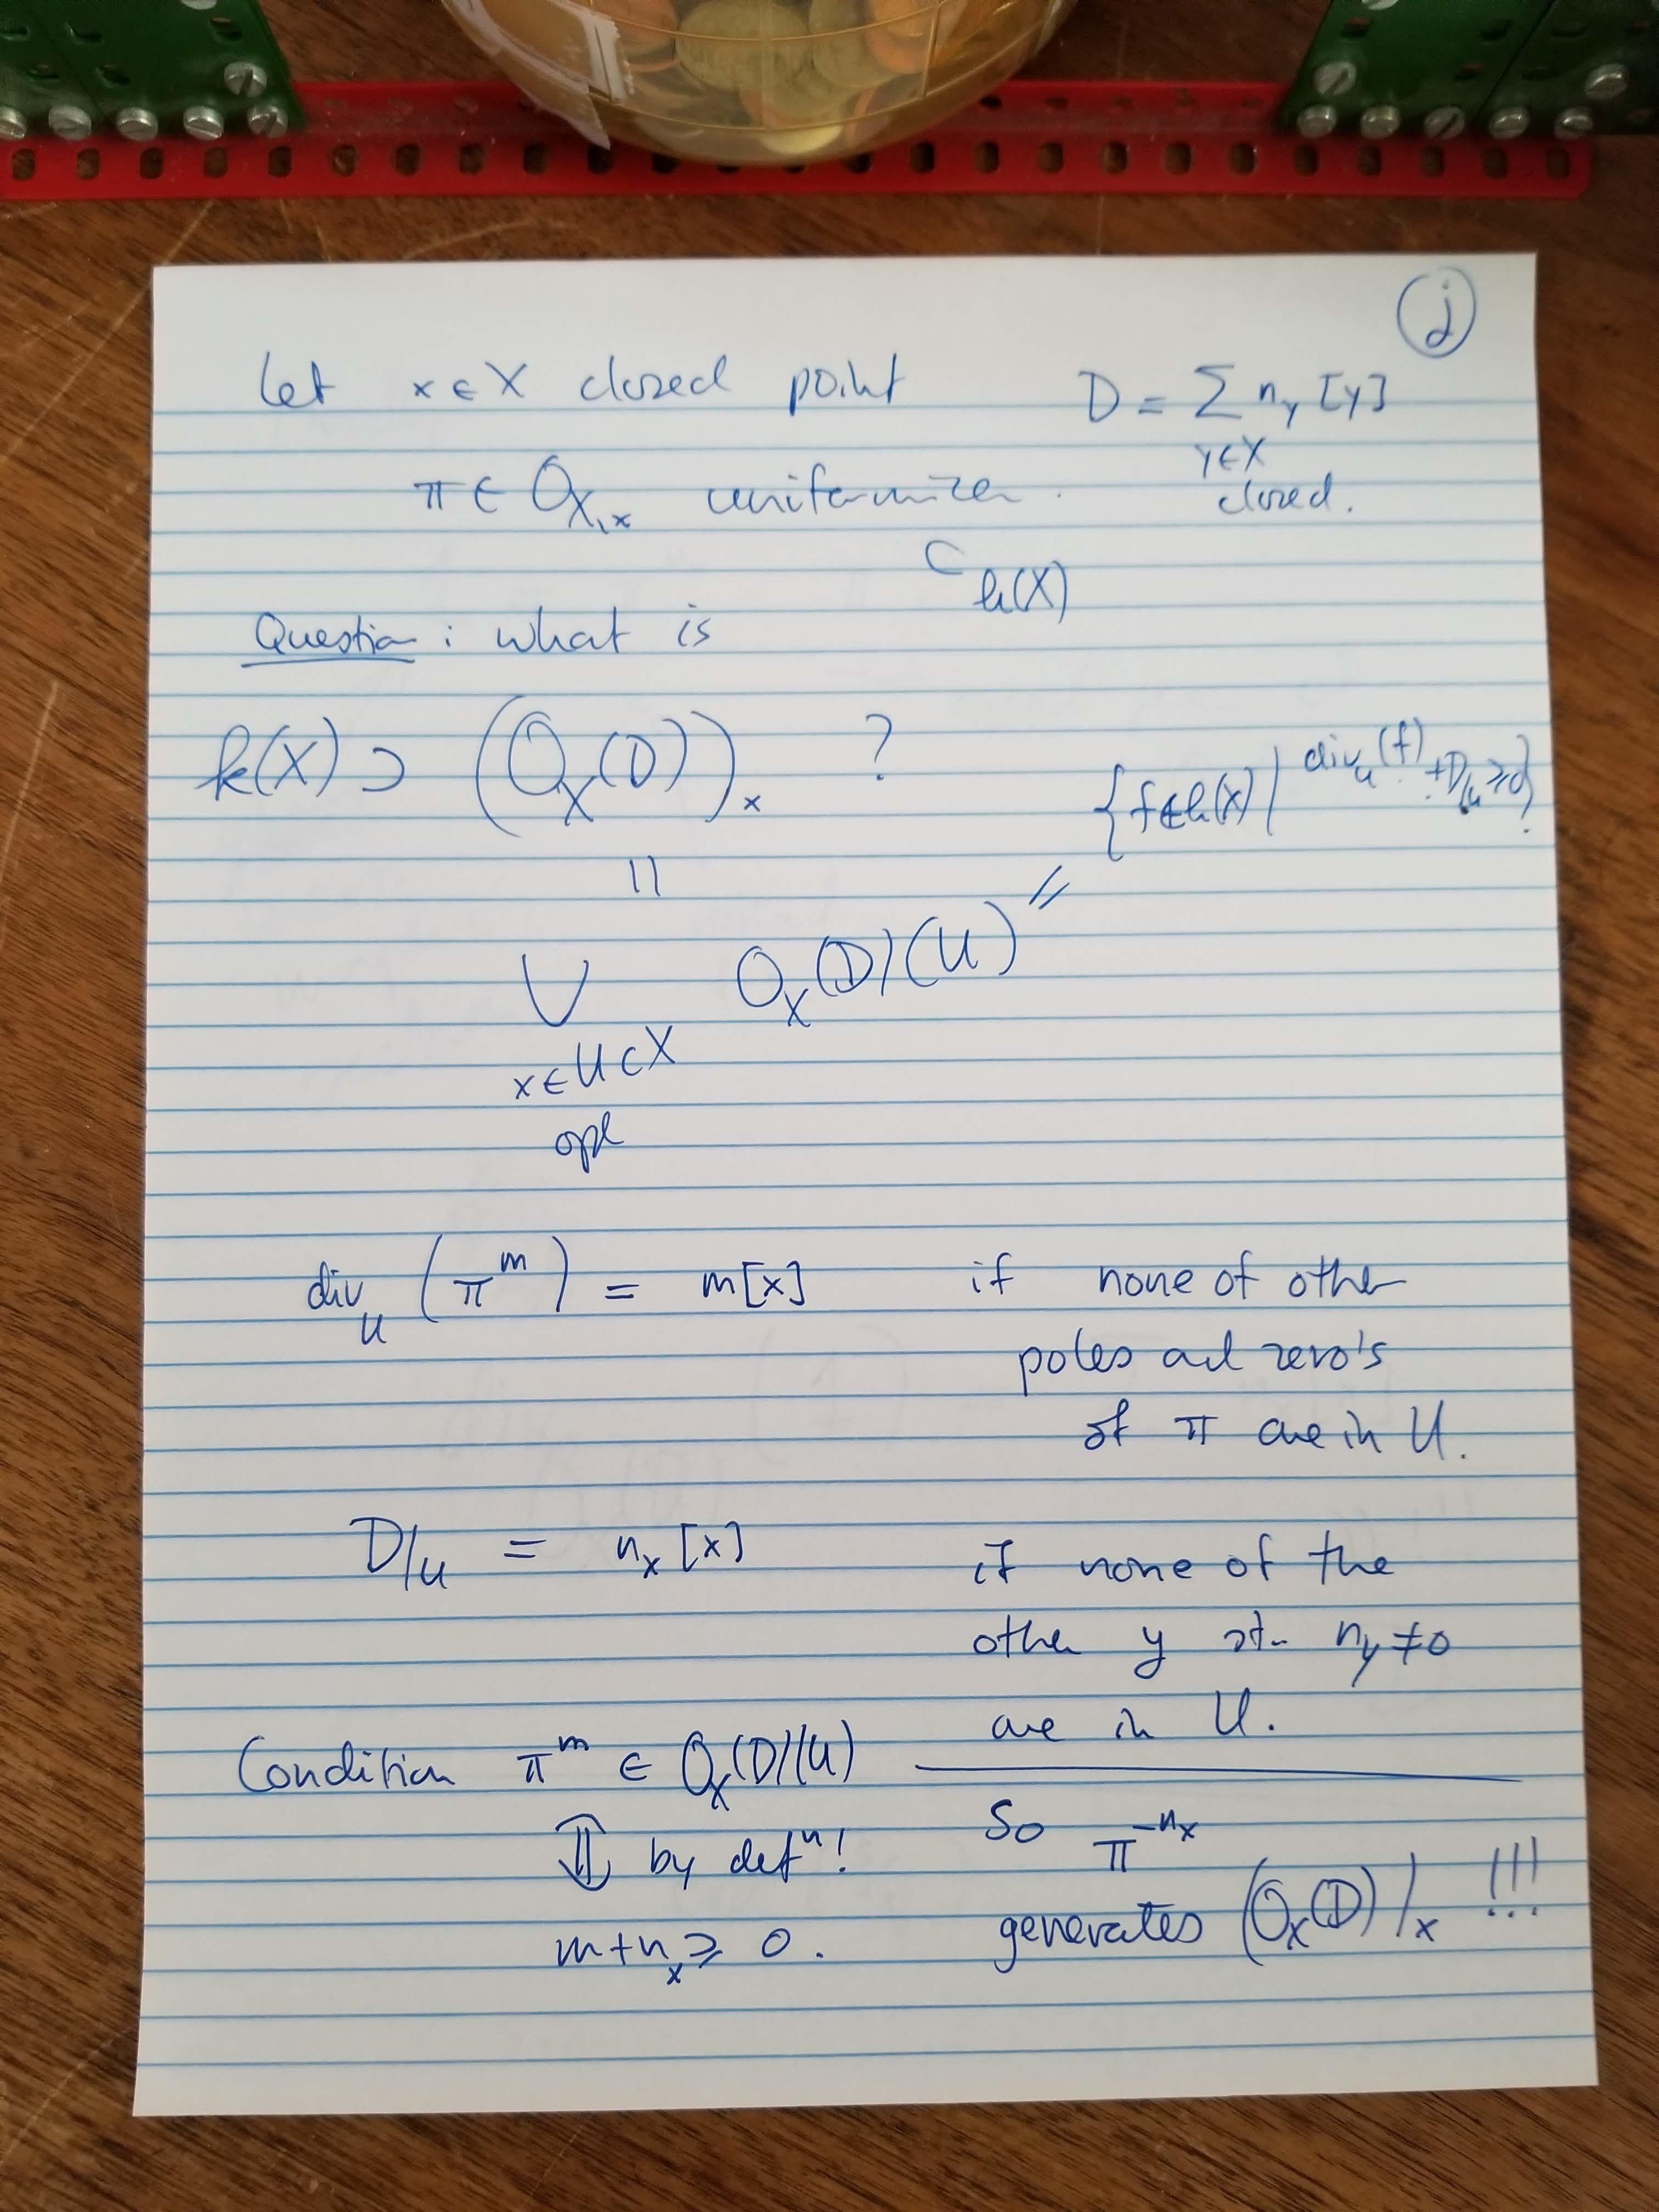 j
Let x ∈ X closed point D = Σ n_y [y]
y ∈ X
π ∈ O_{X,x} uniformizer. closed.
⊂ k(X)
Question : what is
k(X) ⊃ (O_X(D))_x ?
{f ∈ k(X) | div_U(f) + D|_U ≥ 0}
||
∪ O_X(D)(U) =
x ∈ U ⊂ X
open
div_U (π^m) = m[x] if none of other
poles and zero's
of π are in U.
D|_U = n_x [x] if none of the
other y st. n_y ≠ 0
are in U.
Condition π^m ∈ O_X(D)(U)
⇕ by defⁿ! So π^{-n_x}
m + n_x ≥ 0. generates (O_X(D))_x !!!